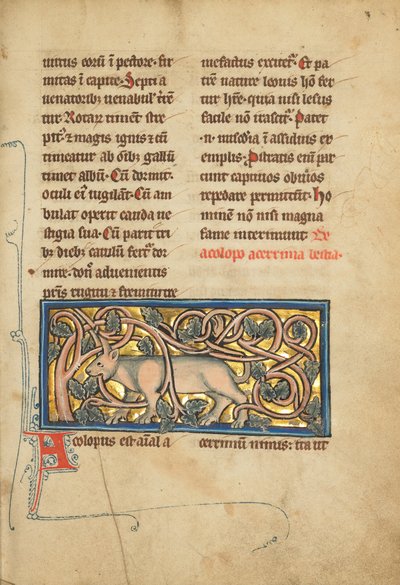 uirtus eorũ ĩ pectore. fir
mitas ĩ capite. Septi a
uenatoribꝫ uenabul' tr̃ent
tur Rotaꝝ timent stre
pit9 ⁊ magis ignis ⁊ cũ
timeatur ab õibꝫ gallũ
timet albũ. Cũ dormit
oculi ei9 uigilant. Cũ am
bulat operit cauda ue
stigia sua. Cũ parit tri
bꝫ diebꝫ catulũ fert̃ dor
mire. don̾ adueniens
pat̃ris rugitu ⁊ fremitu
mefactus excitet̃. Et pa
tret nature leonis hõ fer
tur hr̃e. quia nisi lesus
facile nõ irascit̃. Patet
.n. miscďia ĩ assiduis ex
emplis. Pstratis enĩ par
cunt captiuos obuios
repedare permittunt. Ho
minem nõ nisi magna
fame interimunt De
acolopo acerrima bestia.
Acolopus est aĩal a
cerrimũ nimis: ita ut